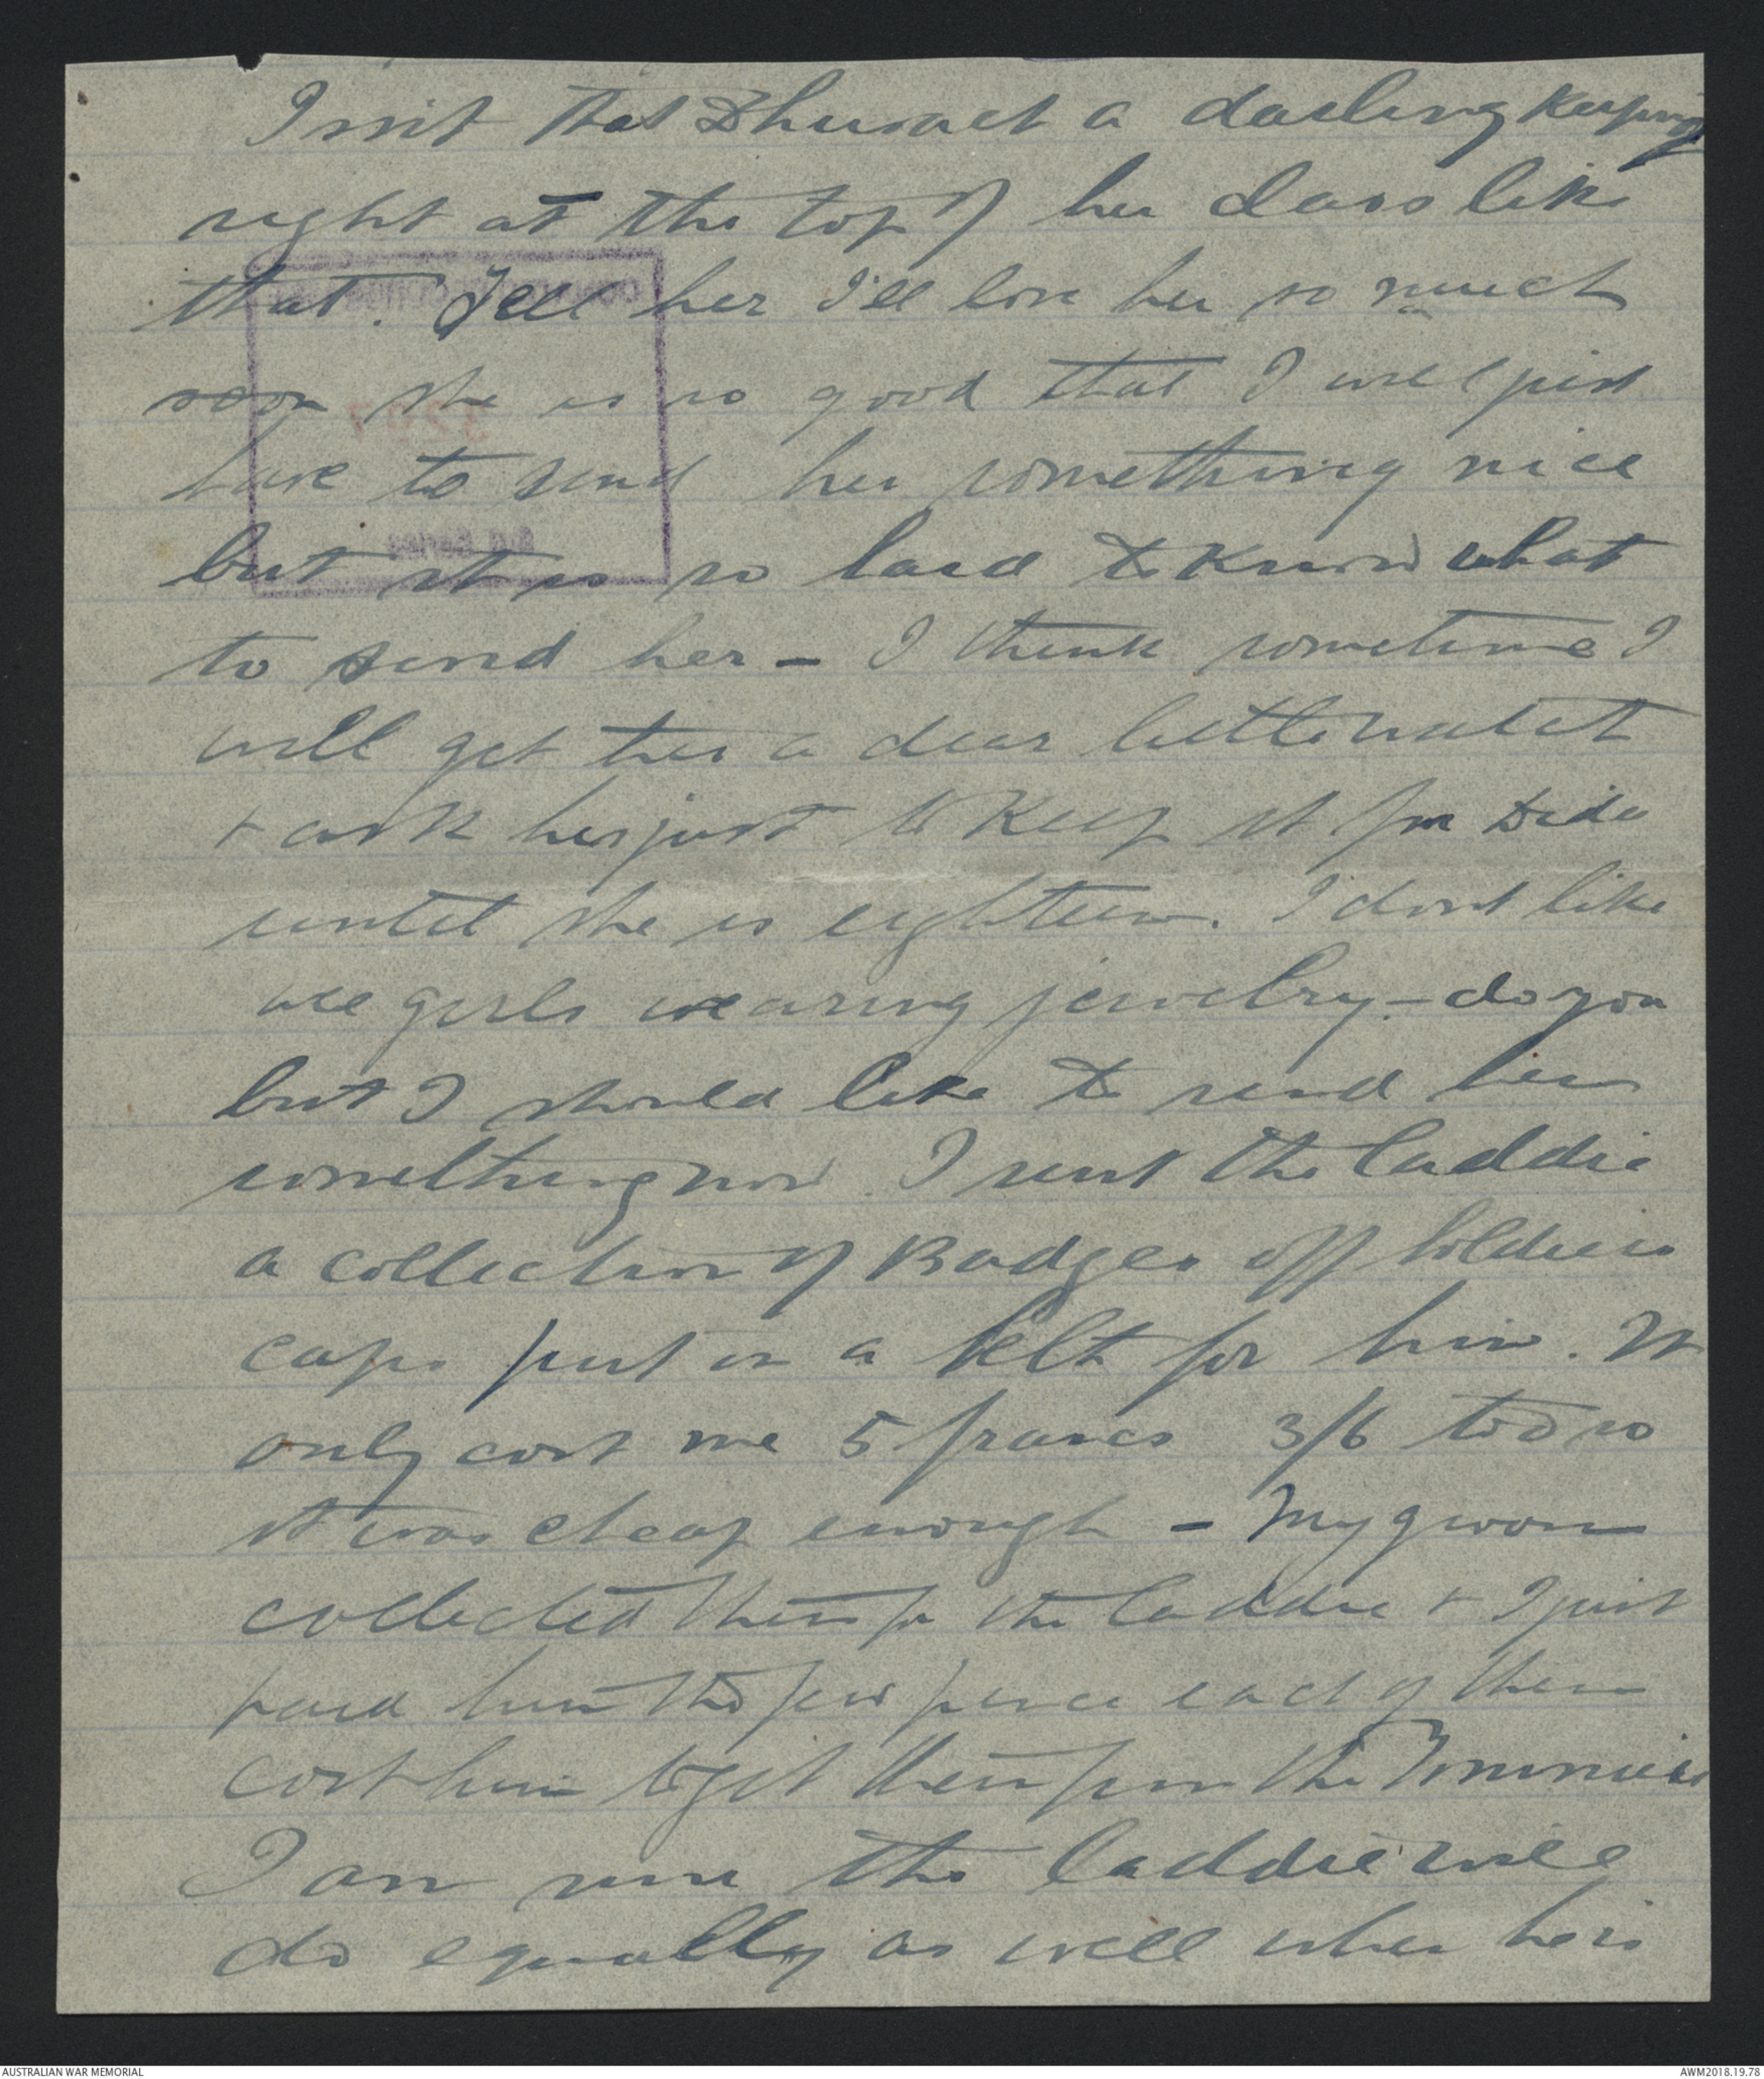 Isnit that a darling keeping
right at the top of her class like
that. Tell her I'll love her so much
soon she is so good that I will just
have to send her something nice
but it is so hard to know what
to send her – I think sometime I
will get her a dear little watch
& ask her just to keep it for
until she is eighteen. I dont like
wee girls wearing jewelry – do you
but I should like to send her
something now. I sent the laddie
a collection of Badges off soldiers
caps put on a belt for him. It
only cost me 5 francs 3/6 too so
it was cheap enough – My groom
collected them for the laddie & I just
paid him the few pence each of them
cost him to get them from the Tommies
I am sure the laddie will
do equally as well when he is
3297
AUSTRALIAN WAR MEMORIAL
AWM2018.19.78